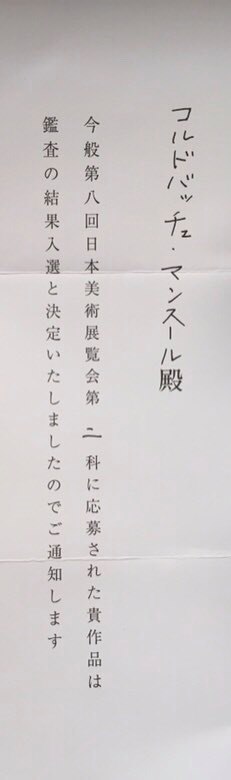 コルドバッチェ・マンスール殿
今般第八回日本美術展覧会第二科に応募された貴作品は
鑑査の結果入選と決定いたしましたのでご通知します